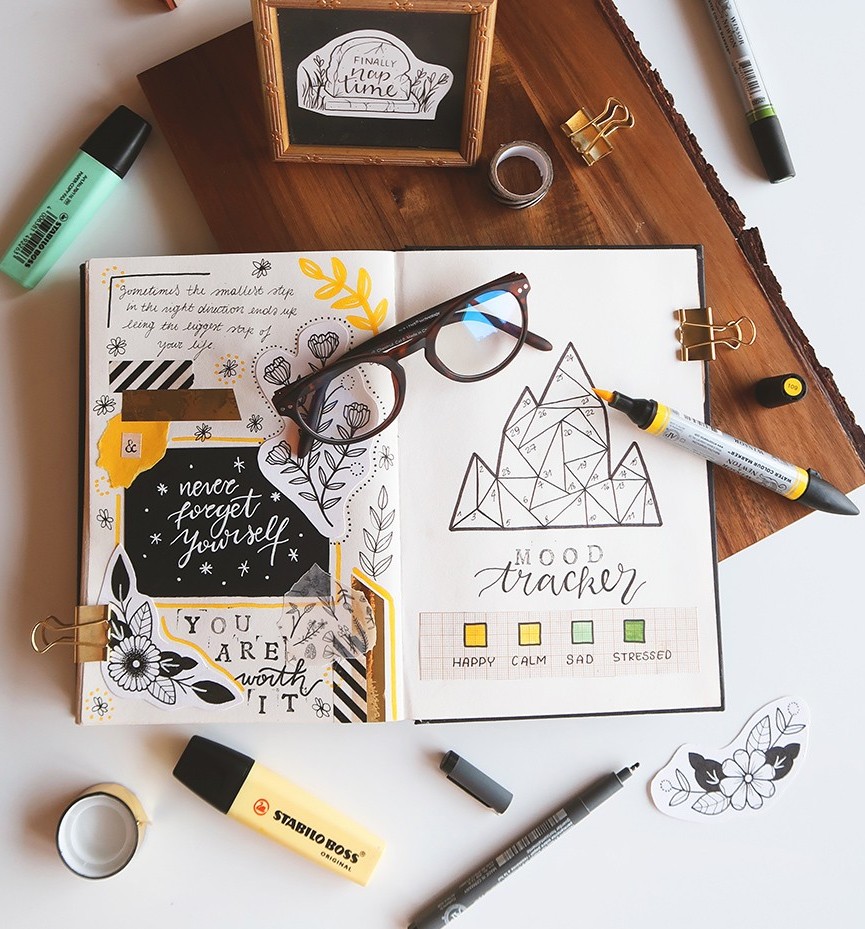 FINALLY
nap
time
STABILO BOSS
Sometimes the smallest step
in the right direction ends up
being the biggest step of
your life.
&
never
forget
yourself
YOU
ARE
worth
IT
MOOD
tracker
HAPPY CALM SAD STRESSED
109
WATER COLOUR MARKER
STABILO BOSS
ORIGINAL